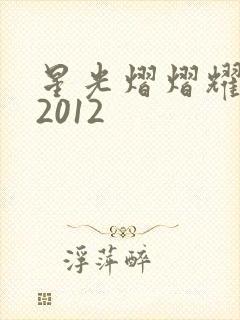 星光熠熠耀
2012
浮萍醉